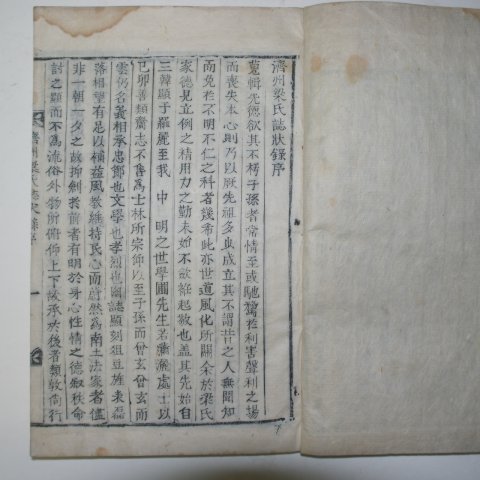 濟州梁氏誌狀錄序
蒐輯先德欲其不朽子孫者常情至或馳騖於利害聲利之場
而喪失本心則乃以厥先祖多負成立其不謂昔之人無聞知
而免於不明不仁之科者幾希此亦世道風化所關余於梁氏
家德見立例之精用力之勤未始不欽起敬也盖其先始自
三韓顯于羅麗至我 中 明之世學圃先生若瀟灑處士以
己卯善類齎志不售爲士林所宗師以至子孫而曾玄曾玄而
雲仍名義相承忠節也文學也孝烈也幽誌顯刻狙豆旌表磊
落相望有足以横益風教維持民心而蔚然爲南土法家者儘
非一朝一夕之故抑剣裁前者有明於身心性情之德叙秩命
討之顯而不爲流俗外物所俯仰上下故承於後者類敦尚行
濟州梁氏誌狀錄序
一